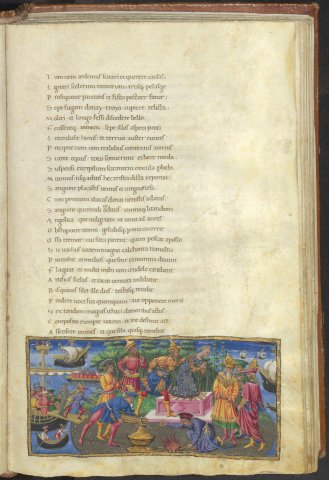 Tum uero ardemus scitari et querere causas
Ignari scelerum tantorum artisq; pelasge
Prosequitur pauitans et ficto pectore fatur
Sepe fugam danay troya cupiere relicta
Moliri et longo fessi discedere bello
Fecissentq; utinam sepe illos aspera ponti
Interclusit hiems et terruit auster euntes
Precipue cum iam trabibus contextus acernis
Staret equus toto sonuerunt ethere nimbi
Suspensi euripilum scitatum oracula phebi
Mittimus isq; aditis hec tristia dicta reportat
Sanguine placastis uentos et uirgine cesa
Cum primum iliacas danai uenistis ad oras
Sanguine querendi reditus animaq; litandum
Argolica uulgi que uox ut uenit ad aures
Obstupuere animi gelidusq; per ima cucurrit
Ossa tremor cui fata parent quem poscat apollo
Hic itacus uatem magno calchanta tumultu
Protrahit in medios que sint ea numina diuum
Flagitat et multi iam crudele canebant
Artificis scelus et taciti uentura uidebant
Bis quinos silet ille dies tectusq; recusat
Prodere uoce sua quemquam aut opponere morti
Vix tandem magnis itaci clamoribus actus
Composito rumpit uocem et me destinat are
Assensere omnes et que sibi quisq; timebat